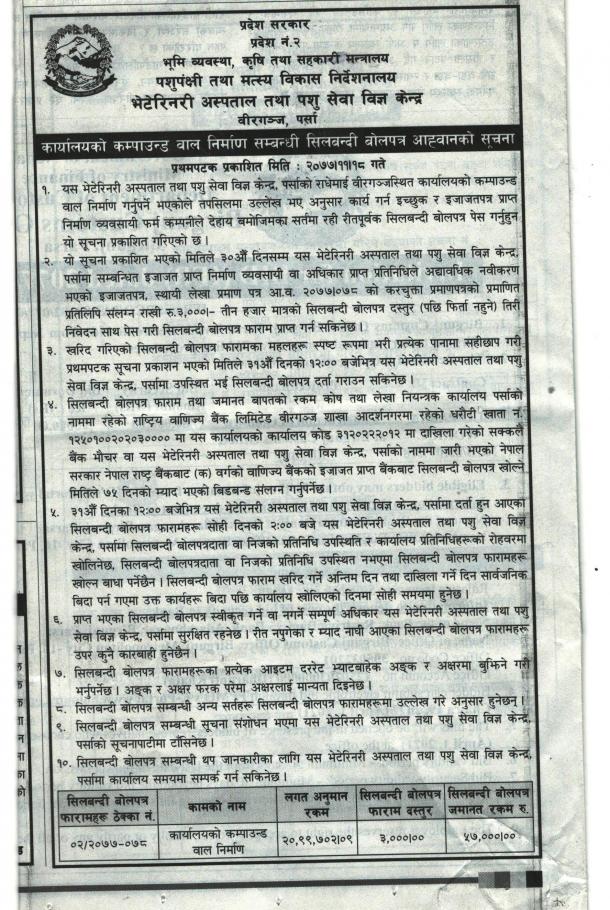 प्रदेश सरकार
प्रदेश नं.२
भूमि व्यवस्था, कृषि तथा सहकारी मन्त्रालय
पशुपंक्षी तथा मत्स्य विकास निर्देशनालय
भेटेरिनरी अस्पताल तथा पशु सेवा विज्ञ केन्द्र
वीरगञ्ज, पर्सा
कार्यालयको कम्पाउन्ड वाल निर्माण सम्बन्धी सिलबन्दी बोलपत्र आह्वानको सूचना
प्रथमपटक प्रकाशित मिति : २०७७।११।१८ गते
१. यस भेटेरिनरी अस्पताल तथा पशु सेवा विज्ञ केन्द्र, पर्साको राधेमाई वीरगञ्जस्थित कार्यालयको कम्पाउन्ड
वाल निर्माण गर्नुपर्ने भएकोले तपसिलमा उल्लेख भए अनुसार कार्य गर्न इच्छुक र इजाजतपत्र प्राप्त
निर्माण व्यवसायी फर्म कम्पनीले देहाय बमोजिमका सर्तमा रही रीतपूर्वक सिलबन्दी बोलपत्र पेस गर्नुहुन
यो सूचना प्रकाशित गरिएको छ ।
२. यो सूचना प्रकाशित भएको मितिले ३०औं दिनसम्म यस भेटेरिनरी अस्पताल तथा पशु सेवा विज्ञ केन्द्र,
पर्सामा सम्बन्धित इजाजत प्राप्त निर्माण व्यवसायी वा अधिकार प्राप्त प्रतिनिधिले अद्यावधिक नवीकरण
भएको इजाजतपत्र, स्थायी लेखा प्रमाण पत्र आ.व. २०७७।०७८ को करचुक्ता प्रमाणपत्रको प्रमाणित
प्रतिलिपि संलग्न राखी रु.३,०००।– तीन हजार मात्रको सिलबन्दी बोलपत्र दस्तुर (पछि फिर्ता नहुने) तिरी
निवेदन साथ पेस गरी सिलबन्दी बोलपत्र फाराम प्राप्त गर्न सकिनेछ ।
३. खरिद गरिएको सिलबन्दी बोलपत्र फारामका महलहरू स्पष्ट रूपमा भरी प्रत्येक पानामा सहीछाप गरी
प्रथमपटक सूचना प्रकाशन भएको मितिले ३१औं दिनको १२:०० बजेभित्र यस भेटेरिनरी अस्पताल तथा पशु
सेवा विज्ञ केन्द्र, पर्सामा उपस्थित भई सिलबन्दी बोलपत्र दर्ता गराउन सकिनेछ ।
४. सिलबन्दी बोलपत्र फाराम तथा जमानत बापतको रकम कोष तथा लेखा नियन्त्रक कार्यालय पर्साको
नाममा रहेको राष्ट्रिय वाणिज्य बैंक लिमिटेड वीरगञ्ज शाखा आदर्शनगरमा रहेको धरौटी खाता नं.
१२५०१००२०२०३०००० मा यस कार्यालयको कार्यालय कोड ३१२०२२२०१२ मा दाखिला गरेको सक्कलै
बैंक भौचर वा यस भेटेरिनरी अस्पताल तथा पशु सेवा विज्ञ केन्द्र, पर्साको नाममा जारी भएको नेपाल
सरकार नेपाल राष्ट्र बैंकबाट (क) वर्गको वाणिज्य बैंकको इजाजत प्राप्त बैंकबाट सिलबन्दी बोलपत्र खोल्ने
मितिले ७५ दिनको म्याद भएको बिडबन्ड संलग्न गर्नुपर्नेछ ।
५. ३१औं दिनका १२:०० बजेभित्र यस भेटेरिनरी अस्पताल तथा पशु सेवा विज्ञ केन्द्र, पर्सामा दर्ता हुन आएका
सिलबन्दी बोलपत्र फारामहरू सोही दिनको २:०० बजे यस भेटेरिनरी अस्पताल तथा पशु सेवा विज्ञ
केन्द्र, पर्सामा सिलबन्दी बोलपत्रदाता वा निजको प्रतिनिधि उपस्थिति र कार्यालय प्रतिनिधिहरूको रोहवरमा
खोलिनेछ, सिलबन्दी बोलपत्रदाता वा निजको प्रतिनिधि उपस्थित नभएमा सिलबन्दी बोलपत्र फारामहरू
खोल्न बाधा पर्नेछैन । सिलबन्दी बोलपत्र फाराम खरिद गर्ने अन्तिम दिन तथा दाखिला गर्ने दिन सार्वजनिक
बिदा पर्न गएमा उक्त कार्यहरू बिदा पछि कार्यालय खोलिएको दिनमा सोही समयमा हुनेछ ।
६. प्राप्त भएका सिलबन्दी बोलपत्र स्वीकृत गर्ने वा नगर्ने सम्पूर्ण अधिकार यस भेटेरिनरी अस्पताल तथा पशु
सेवा विज्ञ केन्द्र, पर्सामा सुरक्षित रहनेछ । रीत नपुगेका र म्याद नाघी आएका सिलबन्दी बोलपत्र फारामहरू
उपर कुनै कारबाही हुनेछैन ।
७. सिलबन्दी बोलपत्र फारामहरूका प्रत्येक आइटम दररेट भ्याटबाहेक अङ्क र अक्षरमा बुझिने गरी
भर्नुपर्नेछ । अङ्क र अक्षर फरक परेमा अक्षरलाई मान्यता दिइनेछ ।
८. सिलबन्दी बोलपत्र सम्बन्धी अन्य सर्तहरू सिलबन्दी बोलपत्र फारामहरूमा उल्लेख गरे अनुसार हुनेछन् ।
९. सिलबन्दी बोलपत्र सम्बन्धी सूचना संशोधन भएमा यस भेटेरिनरी अस्पताल तथा पशु सेवा विज्ञ केन्द्र,
पर्साको सूचनापाटीमा टाँसिनेछ ।
१०. सिलबन्दी बोलपत्र सम्बन्धी थप जानकारीका लागि यस भेटेरिनरी अस्पताल तथा पशु सेवा विज्ञ केन्द्र,
पर्सामा कार्यालय समयमा सम्पर्क गर्न सकिनेछ ।
सिलबन्दी बोलपत्र फारामहरू ठेक्का नं. कामको नाम लगत अनुमान रकम सिलबन्दी बोलपत्र फाराम दस्तुर सिलबन्दी बोलपत्र जमानत रकम रु.
०२/२०७७-०७८ कार्यालयको कम्पाउन्ड वाल निर्माण २०,९९,७०२।०९ ३,०००।०० ५७,०००।००